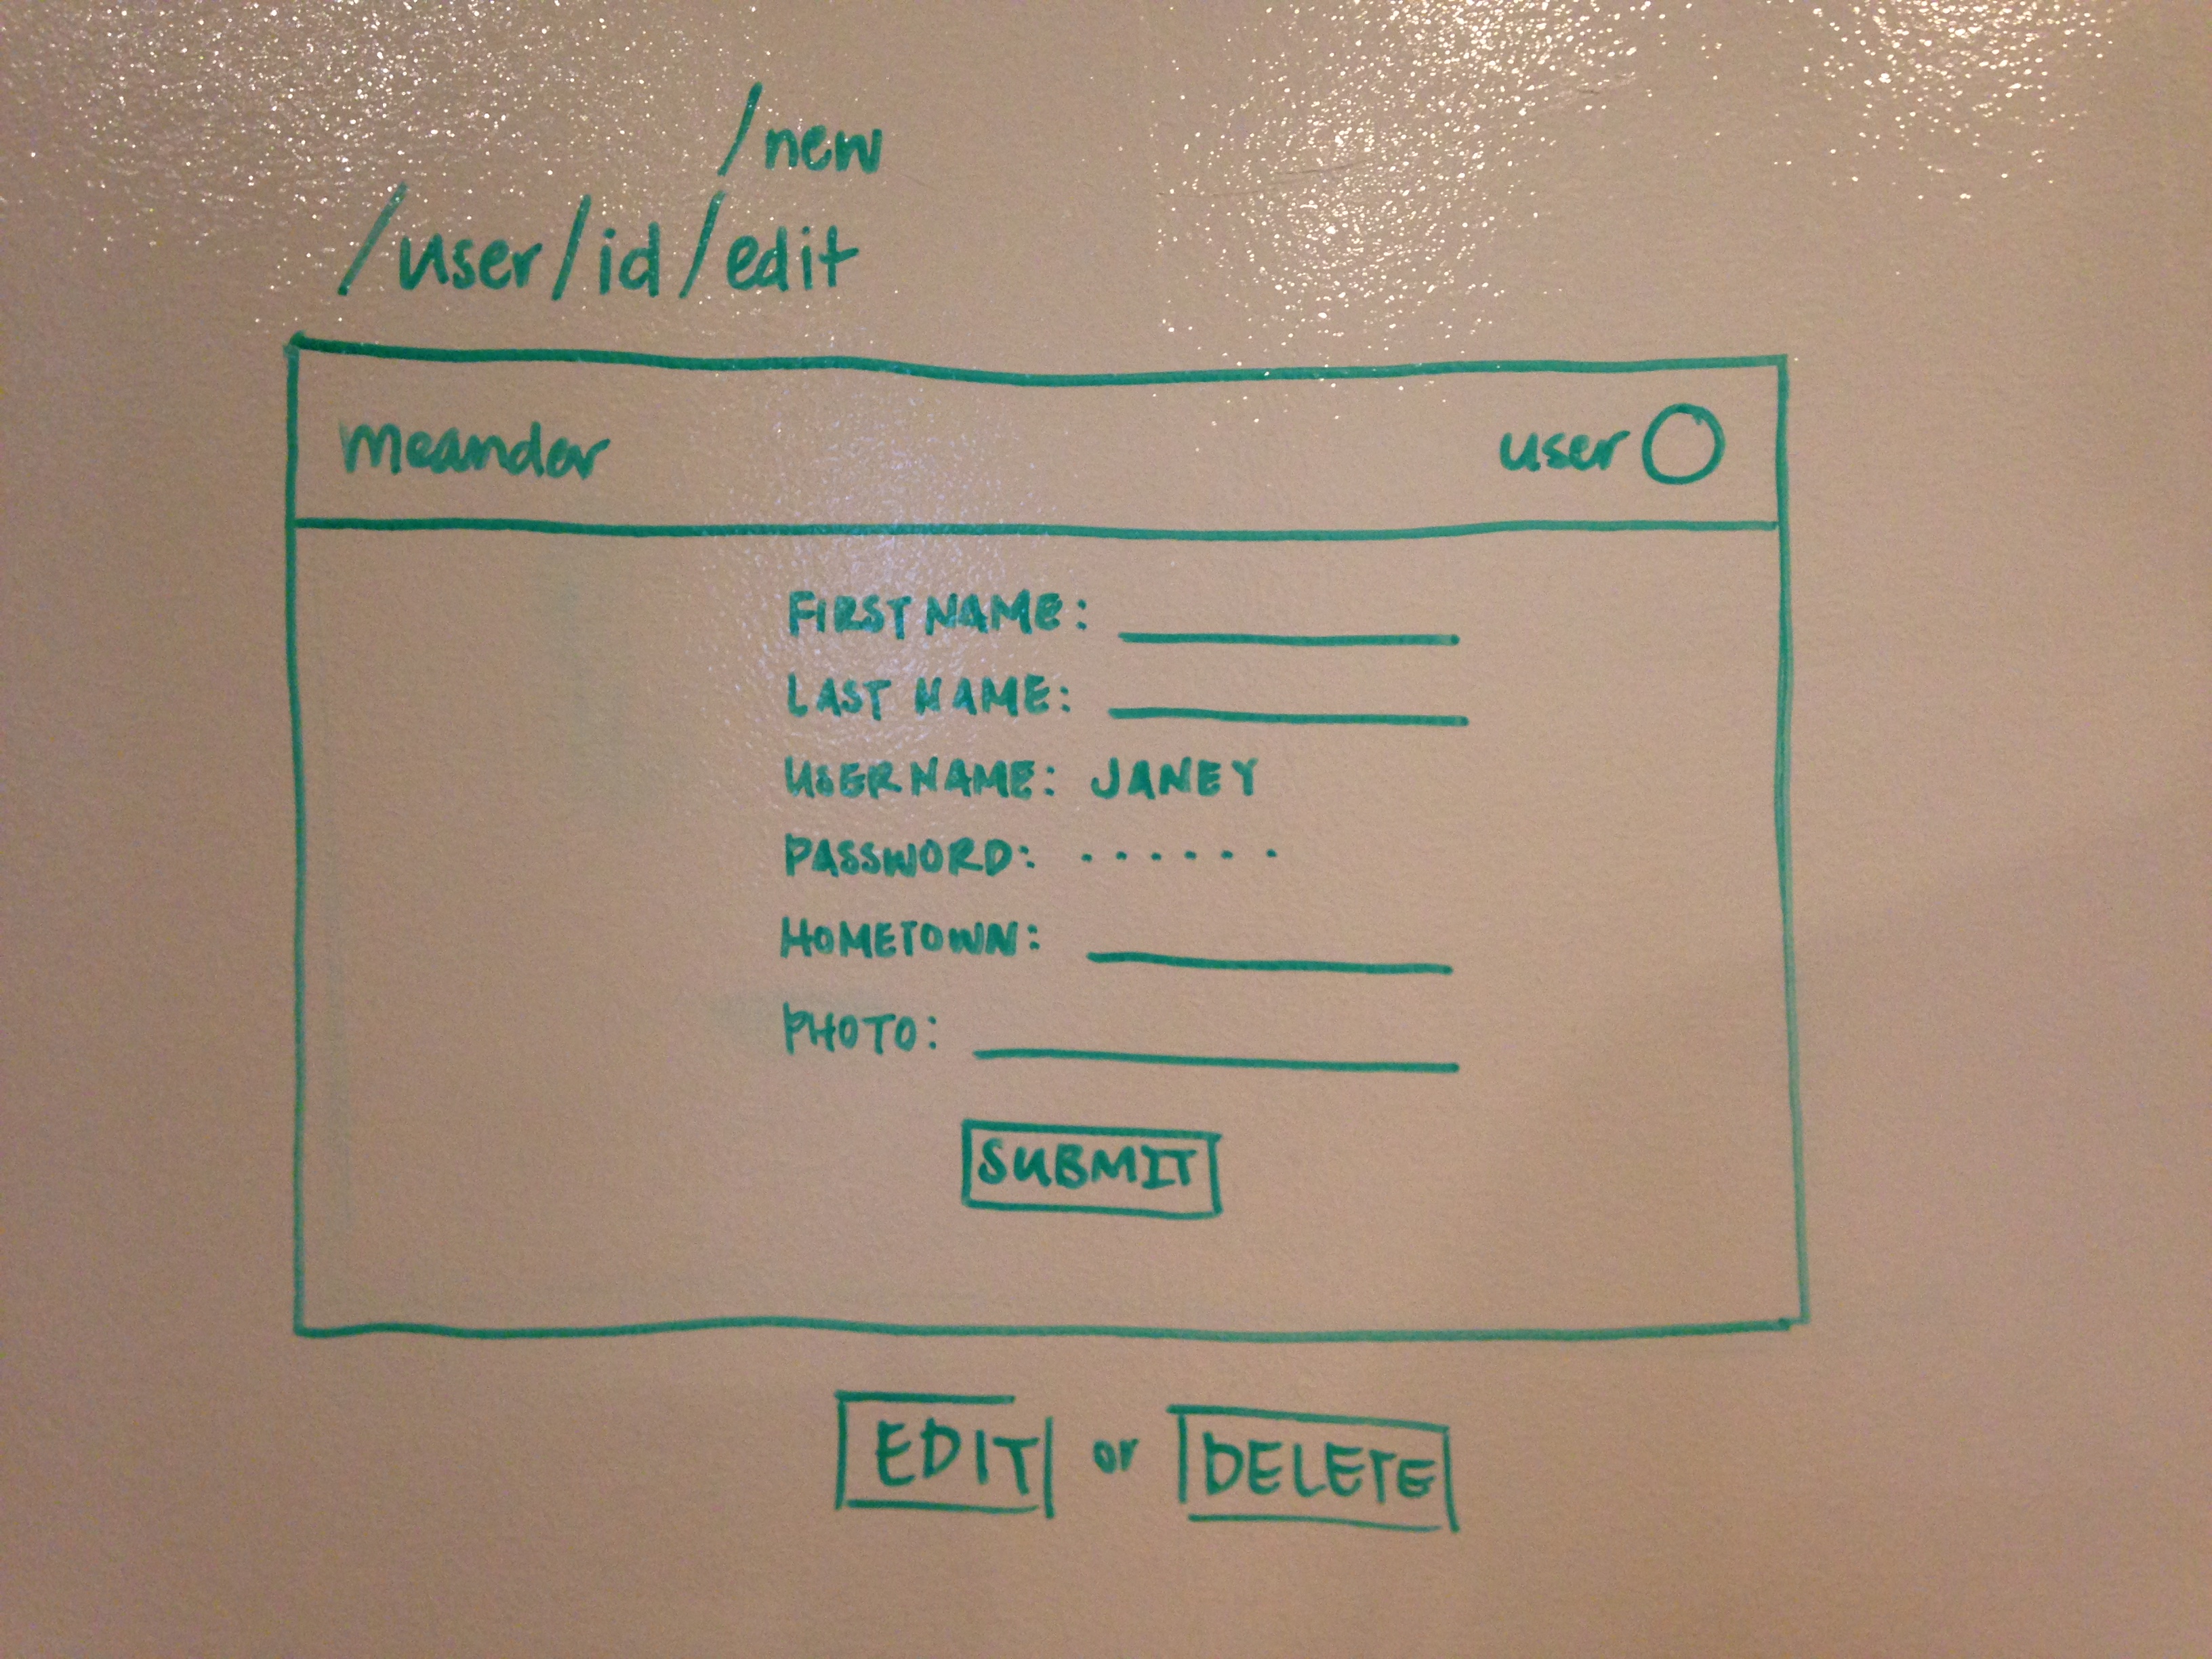 /new
/user/id/edit
meander
user
FIRST NAME:
LAST NAME:
USERNAME: JANEY
PASSWORD: ......
HOMETOWN:
PHOTO:
SUBMIT
EDIT or DELETE